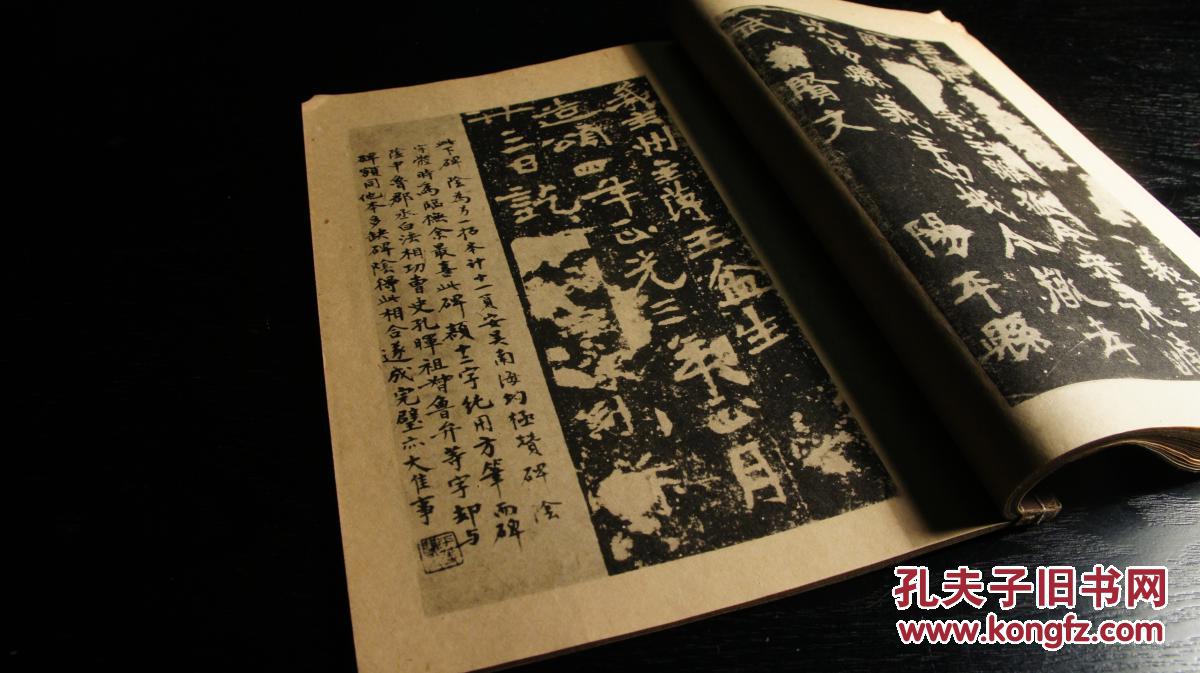 汶陽縣義主南城令嚴孝
武 賢文 陽平縣
義主州主簿王盆生
造頌四年正光三年正月
廿三日訖
此下碑陰為另一拓本計十一頁安吳南海均極贊碑陰
字體時為臨橅余最喜此碑額十二字純用方筆而碑
陰中魯郡丞白法相功曹史孔暉祖對魯弁等字却与
碑額同他本多缺碑陰得此相合遂成完璧亦大佳事
孔夫子旧书网
www.kongfz.com